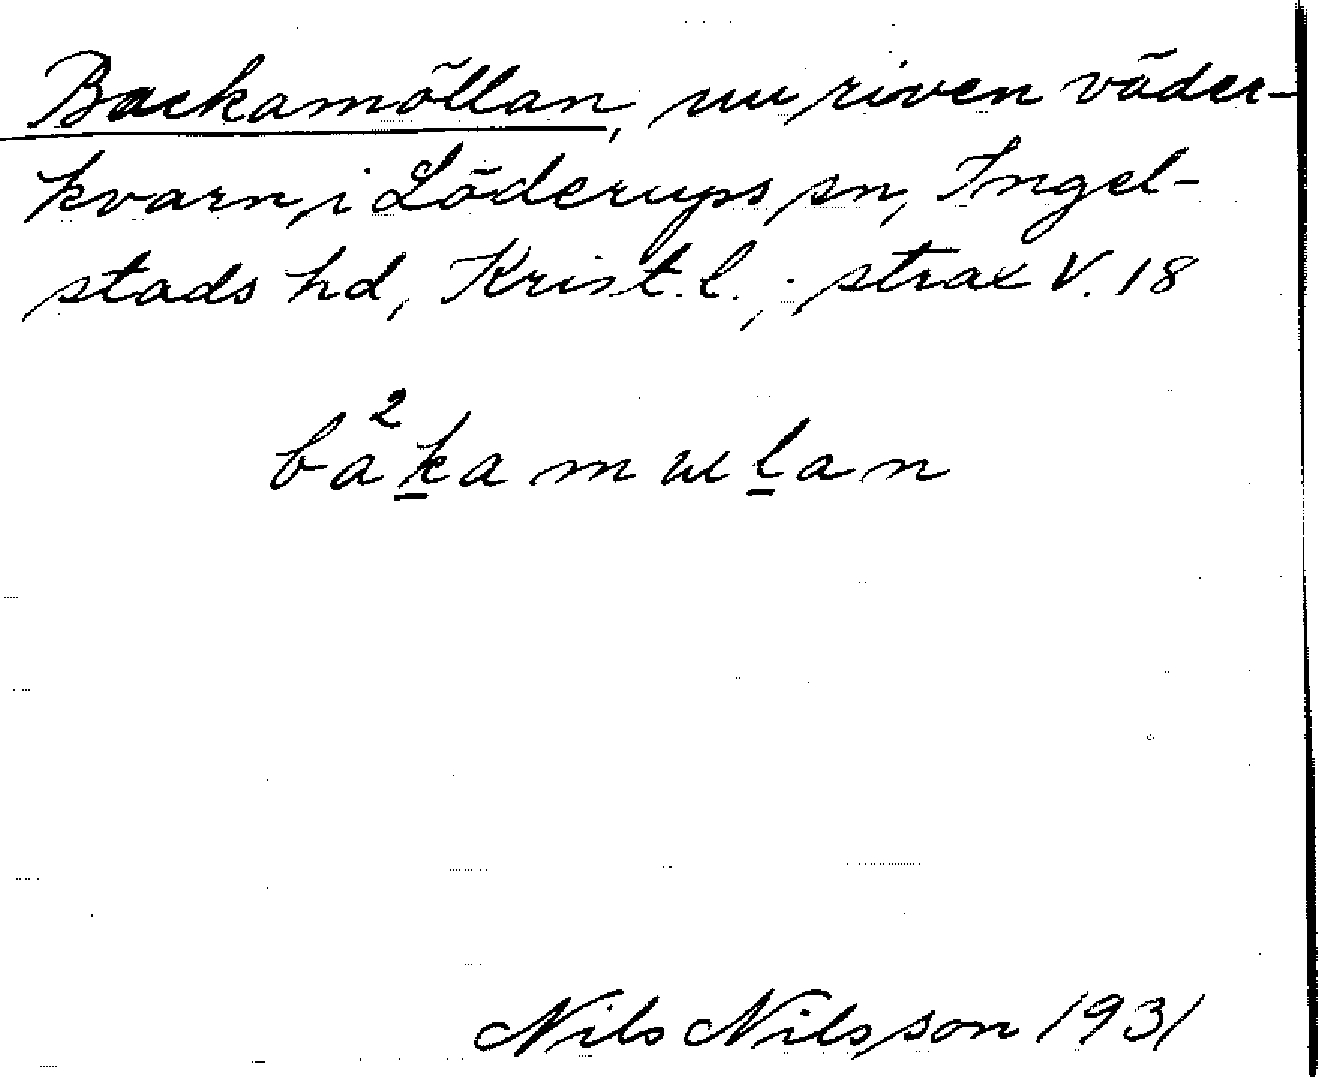 Backamöllan, nu riven väder-
kvarn, i Löderups sn, Ingel-
stads hd, Krist. l., strax V. 18
bà²k̲amɯl̲an
Nils Nilsson 1931